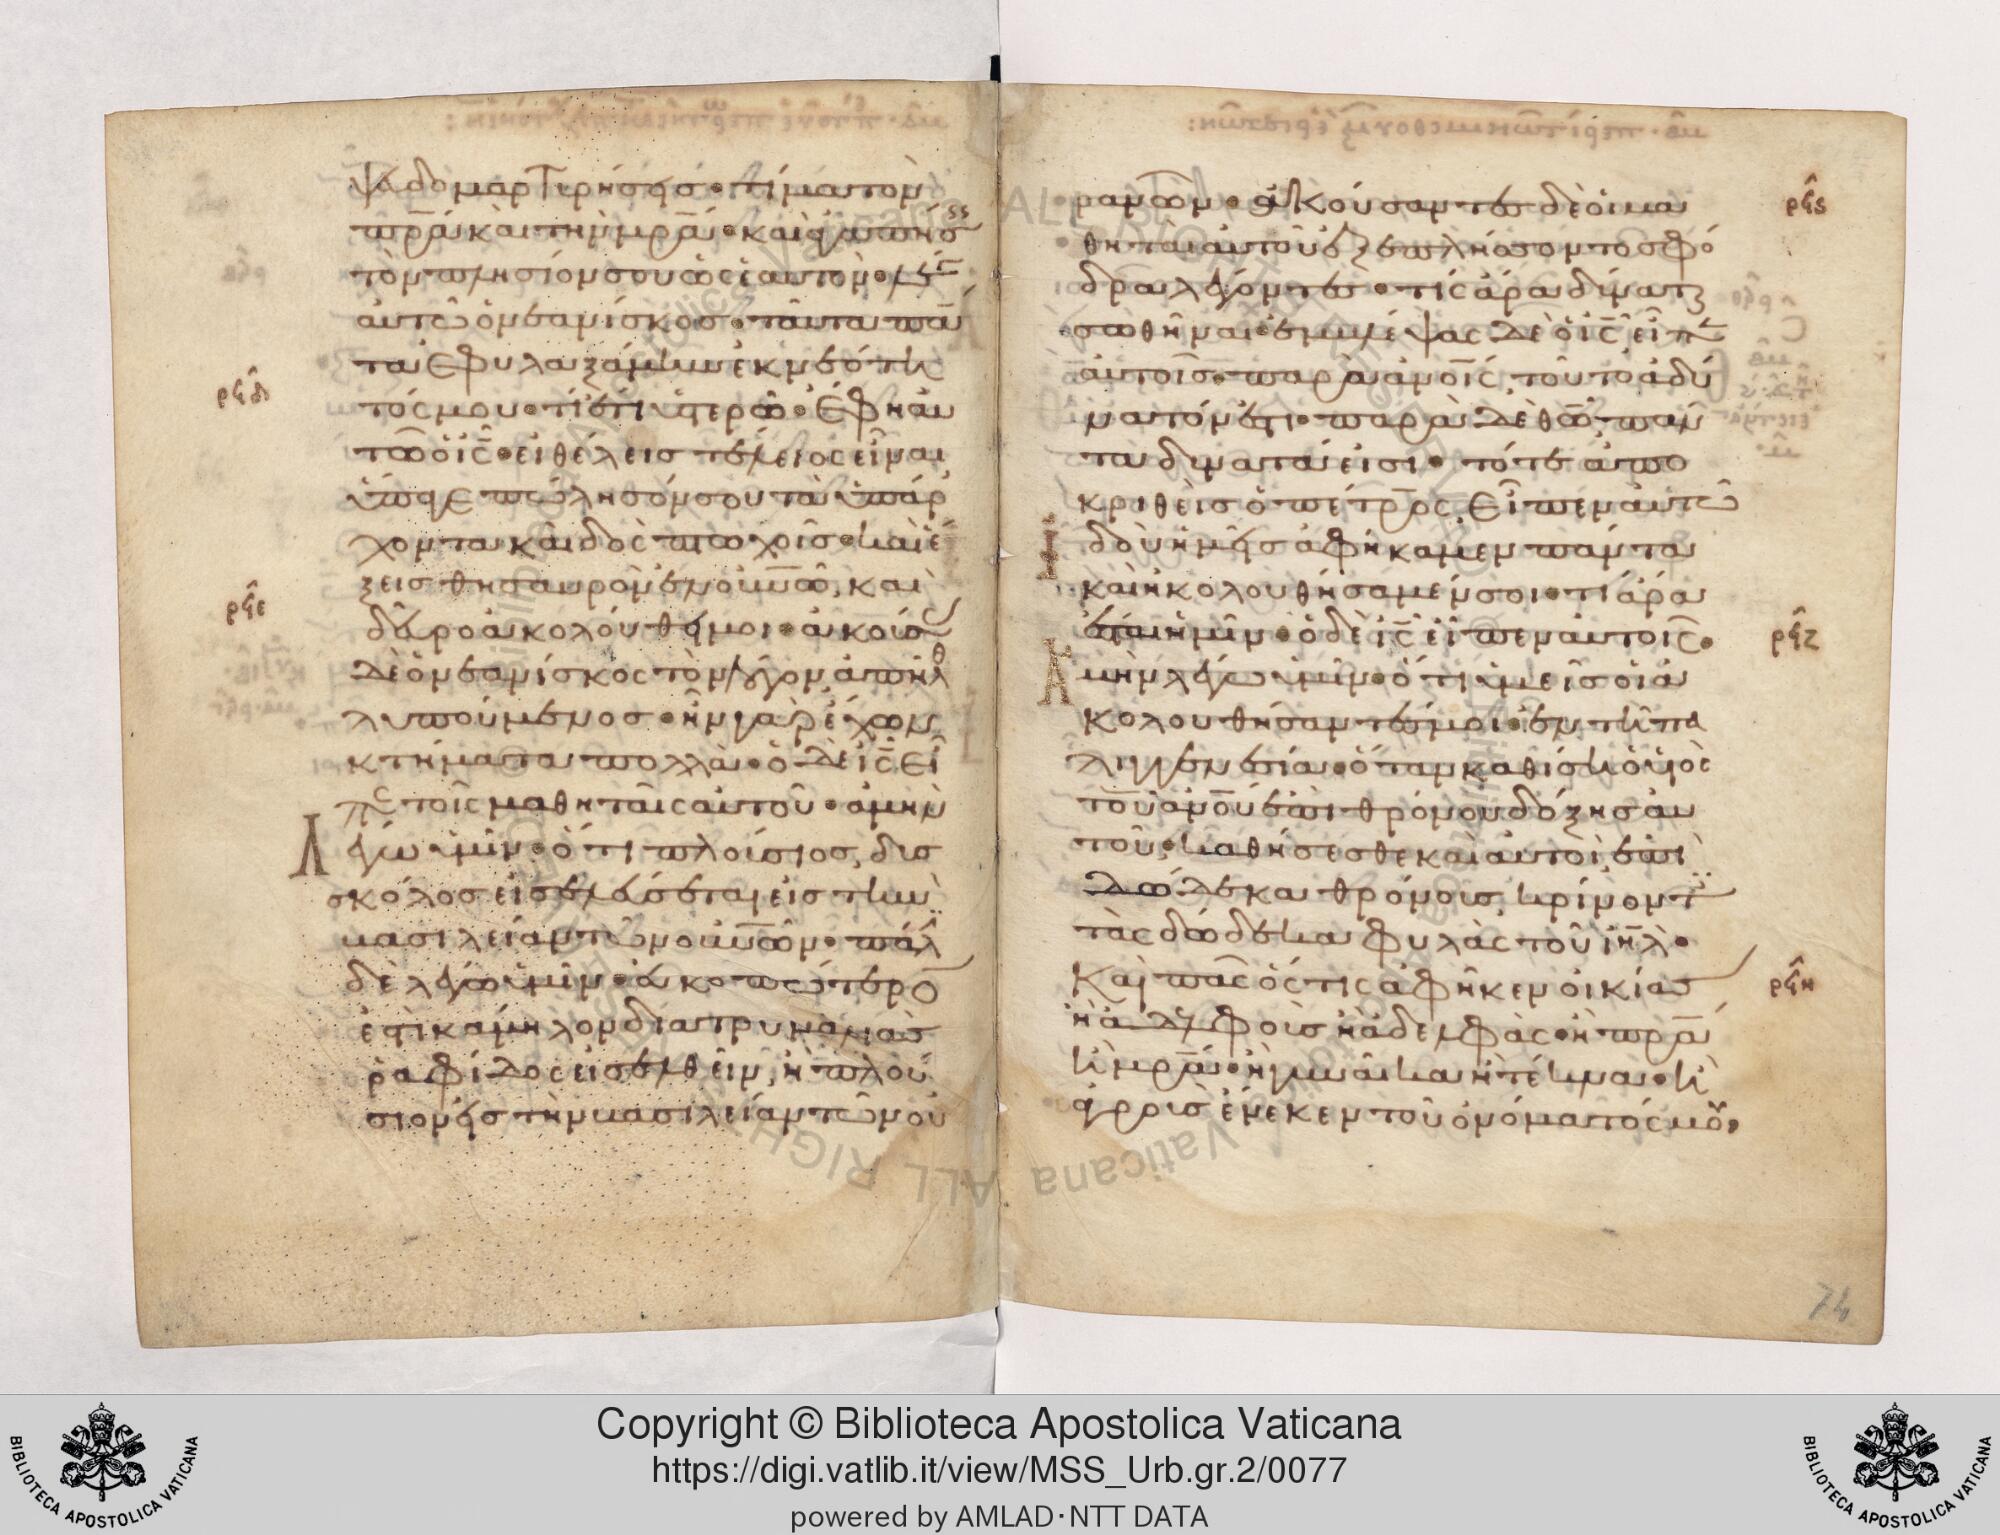 ψευδομαρτυρήσεις· τίμα τὸν
π̅ρ̅α̅ καὶ τὴν μ̅ρ̅α̅· καὶ ἀγαπήσεις
τὸν πλησίον σου ὡς ἑαυτόν· λέγει
αὐτῶ ὁ νεανίσκος· ταῦτα πάν
τα ἐφυλαξάμην ἐκ νεότη
τός μου· τί ἔτι ὑστερῶ· ἔφη αὐ
τῶ ὁ ι̅ς̅· εἰ θέλεις τέλειος εἶναι
ὕπαγε πώλησόν σου τὰ ὑπάρ
χοντα καὶ δὸς πτωχοῖς· καὶ ἕ
ξεις θησαυρὸν ἐν ο̅υ̅ν̅ω̅, καὶ
δεῦρο ἀκολούθει μοι· ἀκούσας
δὲ ὁ νεανίσκος τὸν λόγον ἀπῆλθε
λυπούμενος· ἦν γὰρ ἔχων
κτήματα πολλὰ· ὁ δὲ ι̅ς̅ εἶ
πε τοῖς μαθηταῖς αὐτοῦ· ἀμὴν
λέγω ὑμῖν· ὅτι πλούσιος δυσ
κόλως εἰσελεύσεται εἰς τὴν
βασιλείαν τῶν ο̅υ̅ν̅ω̅ν· πάλιν
δὲ λέγω ὑμῖν· εὐκοπώτερον
ἐστὶ κάμηλον διὰ τρυμαλιᾶς
ῥαφίδος εἰσελθεῖν, ἢ πλού
σιον εἰς τὴν βασιλείαν τῶν οὐ
ρϟδ
ρϟε
ρανῶν· ἀκούσαντες δὲ οἱ μα
θηταὶ αὐτοῦ ἐξεπλήσσοντο σφό
δρα λέγοντες· τίς ἄρα δύναται
σωθῆναι· ἐμβλέψας δὲ ὁ ι̅ς̅ εἶπεν
αὐτοῖς· παρὰ α̅ν̅ο̅ι̅ς̅ τοῦτο ἀδύ
νατόν ἐστι· παρὰ δὲ θ̅ω̅ πάν
τα δυνατά εἰσι· τότε ἀπο
κριθεὶς ὁ πέτρος εἶπεν αὐτῶ
ἰδοὺ ἡμεῖς ἀφήκαμεν πάντα
καὶ ἠκολουθήσαμέν σοι· τί ἄρα
ἔσται ἡμῖν· ὁ δὲ ι̅ς̅ εἶπεν αὐτοῖς·
ἀμὴν λέγω ὑμῖν· ὅτι ὑμεῖς οἱ ἀ
κολουθήσαντές μοι· ἐν τῆ πα
λιγγενεσία· ὅταν καθίση ὁ υἱὸς
τοῦ α̅ν̅ο̅υ̅ ἐπὶ θρόνου δόξης αὐ
τοῦ· καθήσεσθε καὶ αὐτοὶ ἐπὶ
δώδεκα θρόνους κρίνοντες
τὰς δώδεκα φυλὰς τοῦ ι̅η̅λ̅·
Καὶ πᾶς ὅστις ἀφῆκεν οἰκίας
ἢ ἀδελφοὺς ἢ ἀδελφὰς· ἢ π̅ρ̅α̅
ἢ μ̅ρ̅α̅· ἢ γυναῖκα ἢ τέκνα· ἢ
ἀγροὺς ἕνεκεν τοῦ ὀνόματός μου,
ρϟς
ρϟζ
ρϟη
74
Copyright © Biblioteca Apostolica Vaticana
https://digi.vatlib.it/view/MSS_Urb.gr.2/0077
powered by AMLAD·NTT DATA
BIBLIOTECA APOSTOLICA VATICANA
BIBLIOTECA APOSTOLICA VATICANA